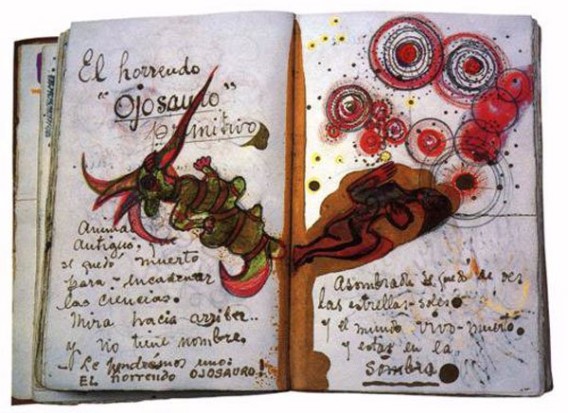 El horrendo
"OJOSAURO"
primitivo
Animal
Antiguo,
se quedó muerto
para encadenar
las ciencias.
Mira hacia arriba..
y no tiene nombre.
Le pondremos uno:
EL horrendo OJOSAURO!
Asombrada se quedó de ver
las estrellas-soles
y el mundo vivo-muerto.
y estar en la
sombra